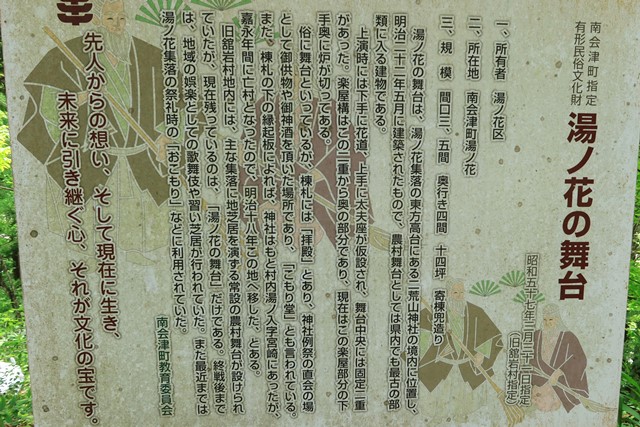 南会津町指定
有形民俗文化財
湯ノ花の舞台
昭和五十七年三月二十二日指定
(旧舘岩村指定)
一、所有者　湯ノ花区
二、所在地　南会津町湯ノ花
三、規　模　間口三、五間　奥行き四間　十四坪　寄棟兜造り
湯ノ花の舞台は、湯ノ花集落の東方高台にある二荒山神社の境内に位置し、
明治二十二年五月に建築されたもので、農村舞台としては県内でも最古の部
類に入る建物である。
上演時には下手に花道、上手に太夫座が仮設され、舞台中央には固定二重
があった。楽屋構はこの二重から奥の部分であり、現在はこの楽屋部分の下
手奥に炉が切ってある。
俗に舞台といっているが、棟札には「拝殿」とあり、神社例祭の直会の場
として御供物や御神酒を頂いた場所であり、「こもり堂」とも言われている。
また、棟札の下の縁起板によれば、神社はもと村内湯ノ入字宮崎にあったが、
嘉永年間に亡村となったので、明治十八年この地へ移した、とある。
旧舘岩村地内には、主な集落に地芝居を演する常設の農村舞台が設けられ
ていたが、現在残っているのは、「湯ノ花の舞台」だけである。終戦後まで
は、地域の娯楽としての歌舞伎や習い芝居が行われていた。また最近までは
湯ノ花集落の祭礼時の「おこもり」などに利用されていた。
南会津町教育委員会
先人からの想い、そして現在に生き、
未来に引き継ぐ心、それが文化の宝です。